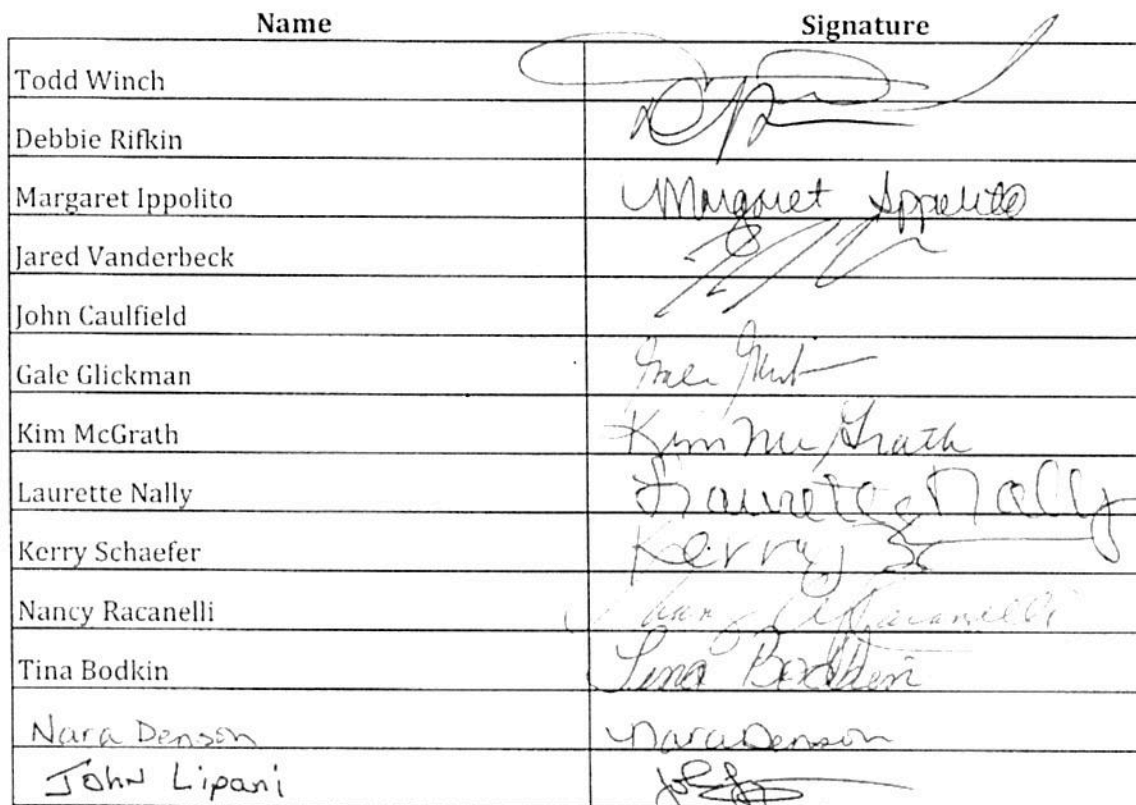 Name Signature
Todd Winch
Debbie Rifkin
Margaret Ippolito Margaret Ippolito
Jared Vanderbeck
John Caulfield
Gale Glickman Gale
Kim McGrath Kim McGrath
Laurette Nally Laurette Nally
Kerry Schaefer Kerry
Nancy Racanelli Nancy Racanelli
Tina Bodkin Tina Bodkin
Nara Denson Nara Denson
John Lipani John